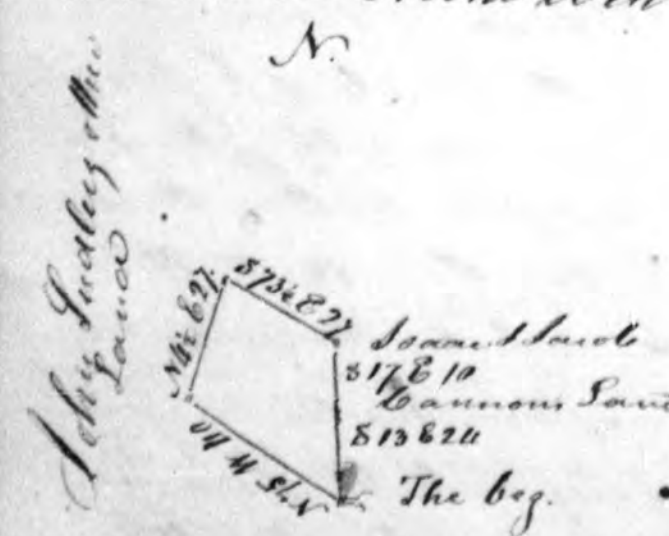 N.
John Lindley other
Land
S 73½ E 27
N 4½ E 27.
Isaac & Jacob
S 17 E 10
Cannons Land
S 13 E 24
N 75 W 40
The beg.